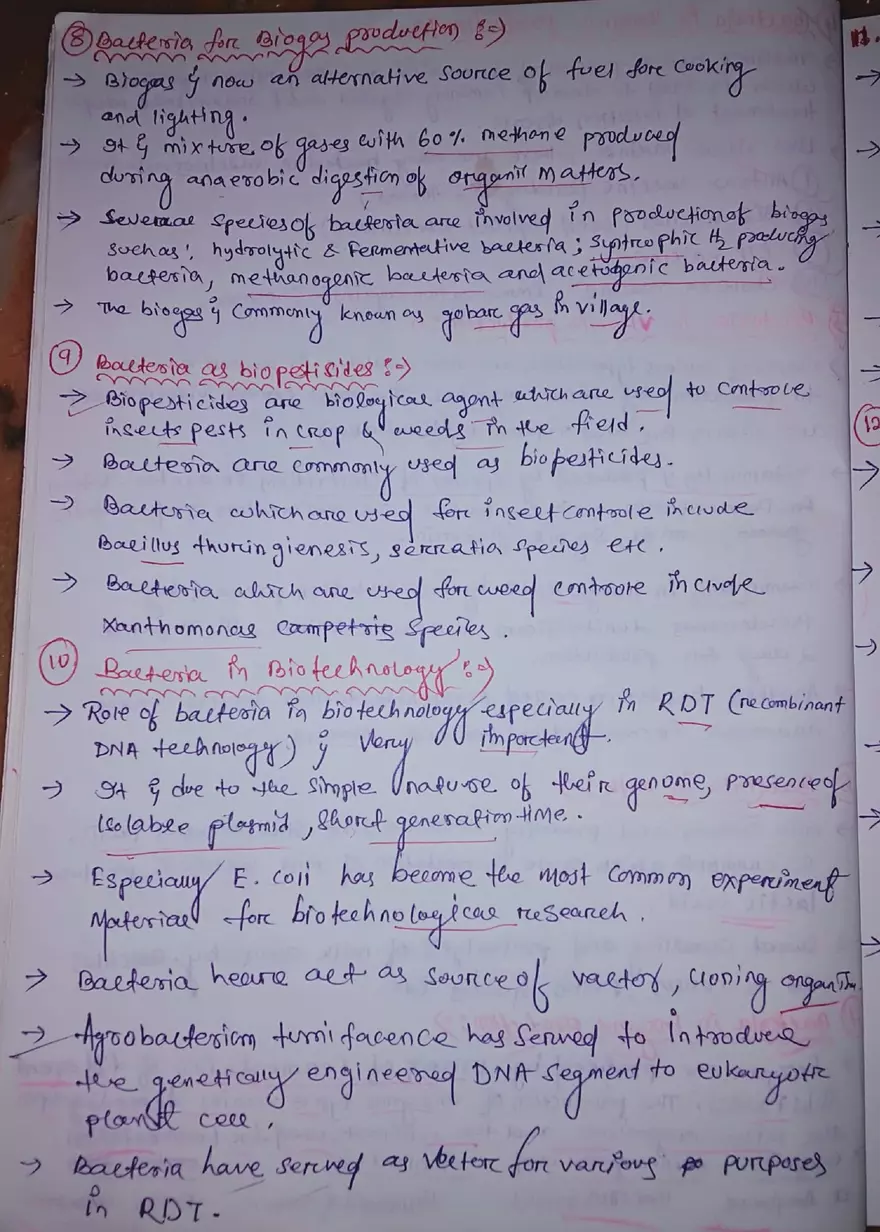 ⑧ Bacteria for Biogas production :⇒
→ Biogas is now an alternative source of fuel fore cooking
and lighting.
→ It is mixture of gases with 60% methane produced
during anaerobic digestion of organic matters.
→ Several species of bacteria are involved in production of biogas
such as; hydrolytic & Fermentative bacteria; Syntrophic H₂ producing
bacteria, methanogenic bacteria and acetogenic bacteria.
→ The biogas is commonly known as gobar gas in village.
⑨ Bacteria as biopestisides :⇒
→ Biopesticides are biological agent which are used to controle
insects pests in crop & weeds in the field.
→ Bacteria are commonly used as biopesticides.
→ Bacteria which are used for insect controle include
Bacillus thuringienesis, serratia species etc.
→ Bacteria which are used for weed controle include
Xanthomonas campetris species.
⑩ Bacteria in Biotechnology :⇒
→ Role of bacteria in biotechnology especially in RDT (recombinant
DNA technology) is very important.
→ It is due to the simple nature of their genome, presence of
isolable plasmid, short generation time.
→ Especially E. coli has become the most common experiment
Material fore biotechnological research.
→ Bacteria heare act as source of vactor, cloning organism
→ Agrobacteriom tumifacence has served to introduce
the genetically engineered DNA segment to eukaryotic
plant cell.
→ Bacteria have served as vector for various purposes
in RDT.
12